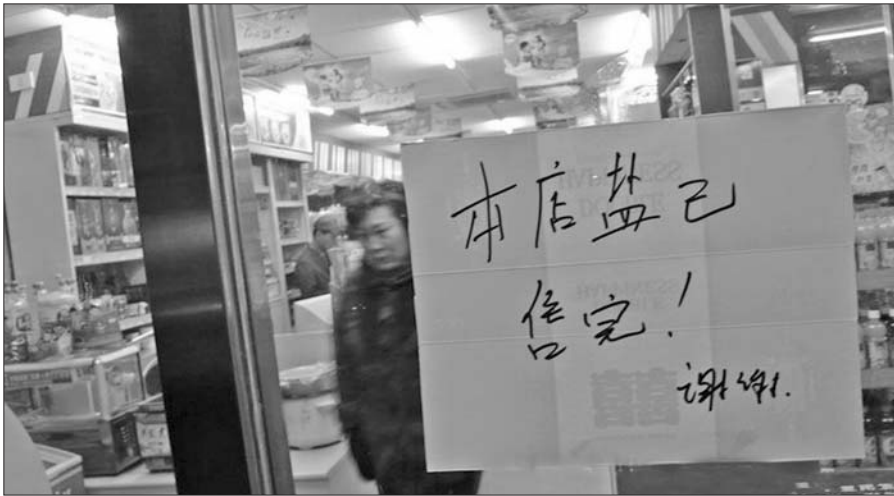 本店盐已
售完！
谢谢.